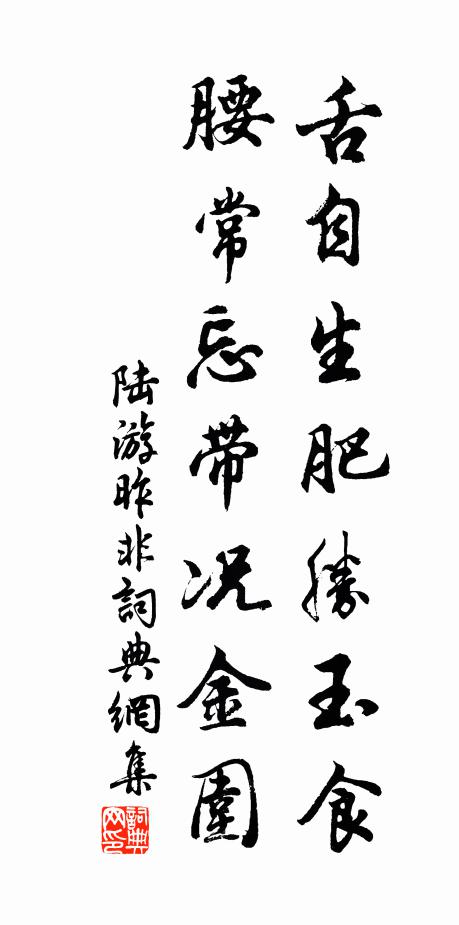 舌自生肥勝玉食
腰常忘帶况金圍
陸游昨非詞典網集
詞典网印